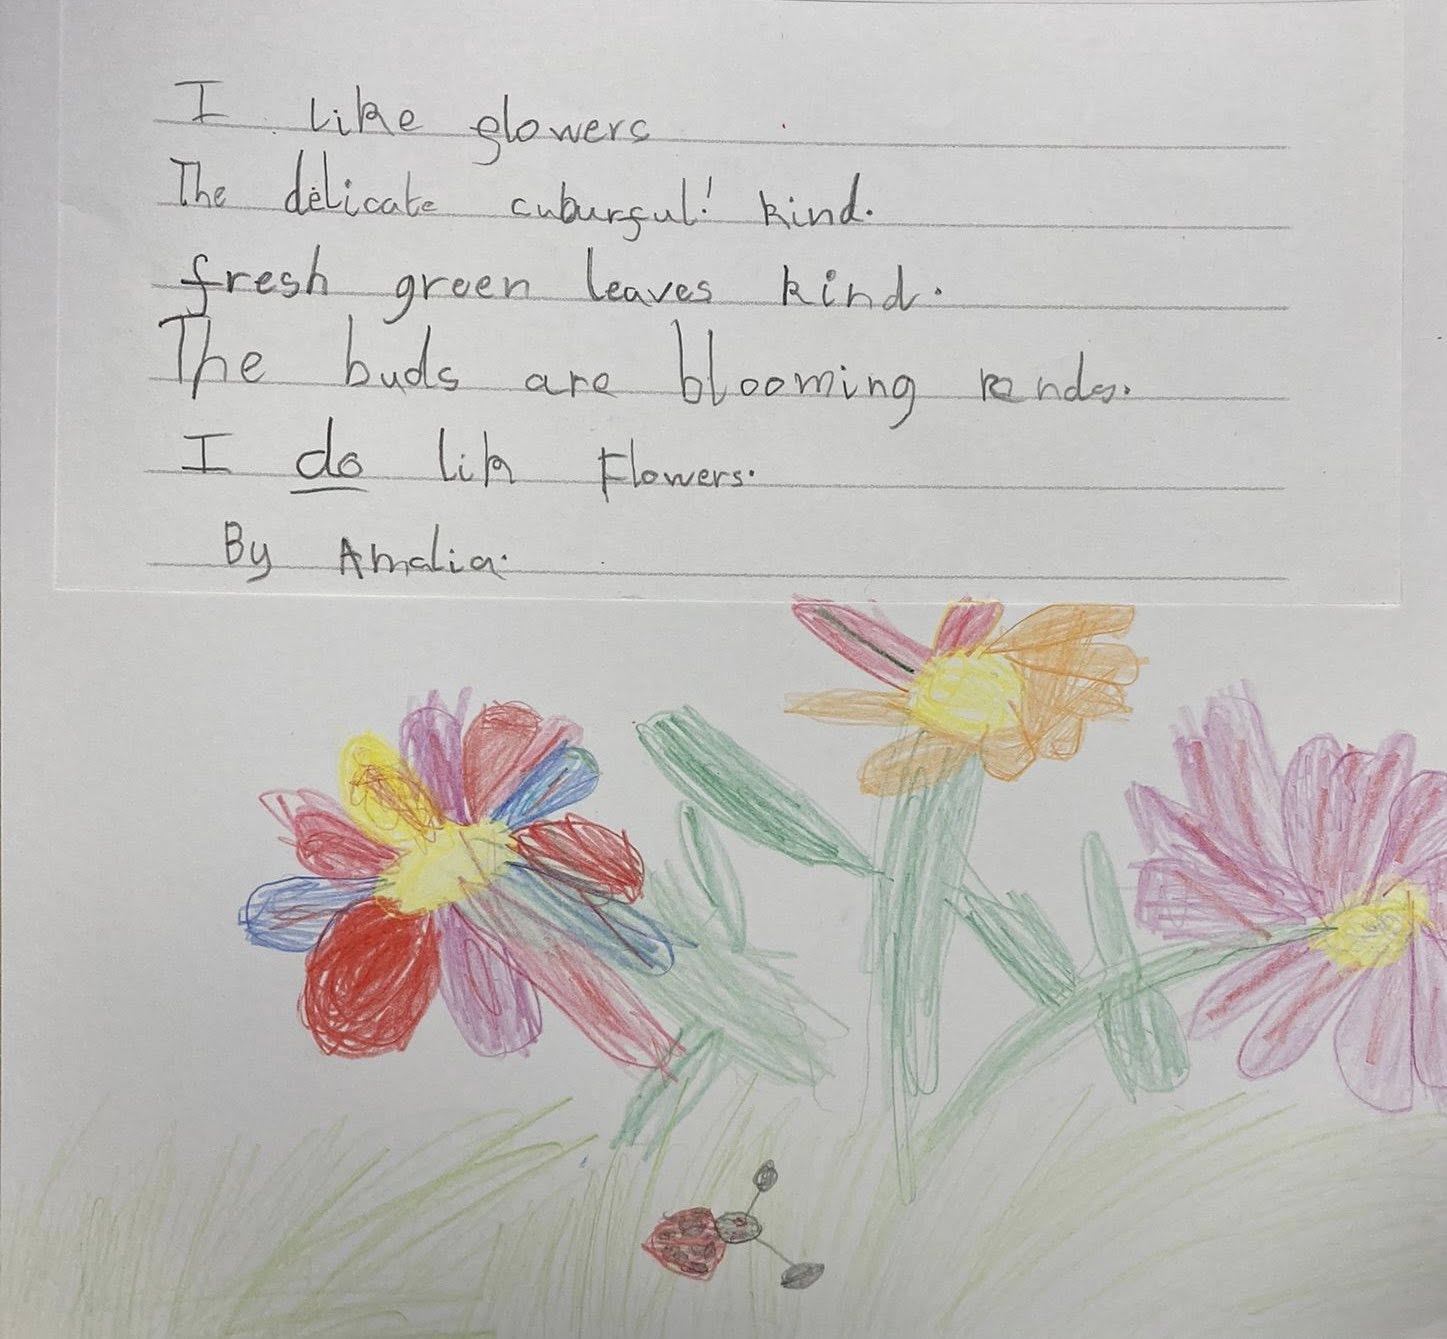 I like flowers
The delicate cuburful! kind.
fresh green leaves kind.
The buds are blooming
I do lik Flowers.
By Amalia.